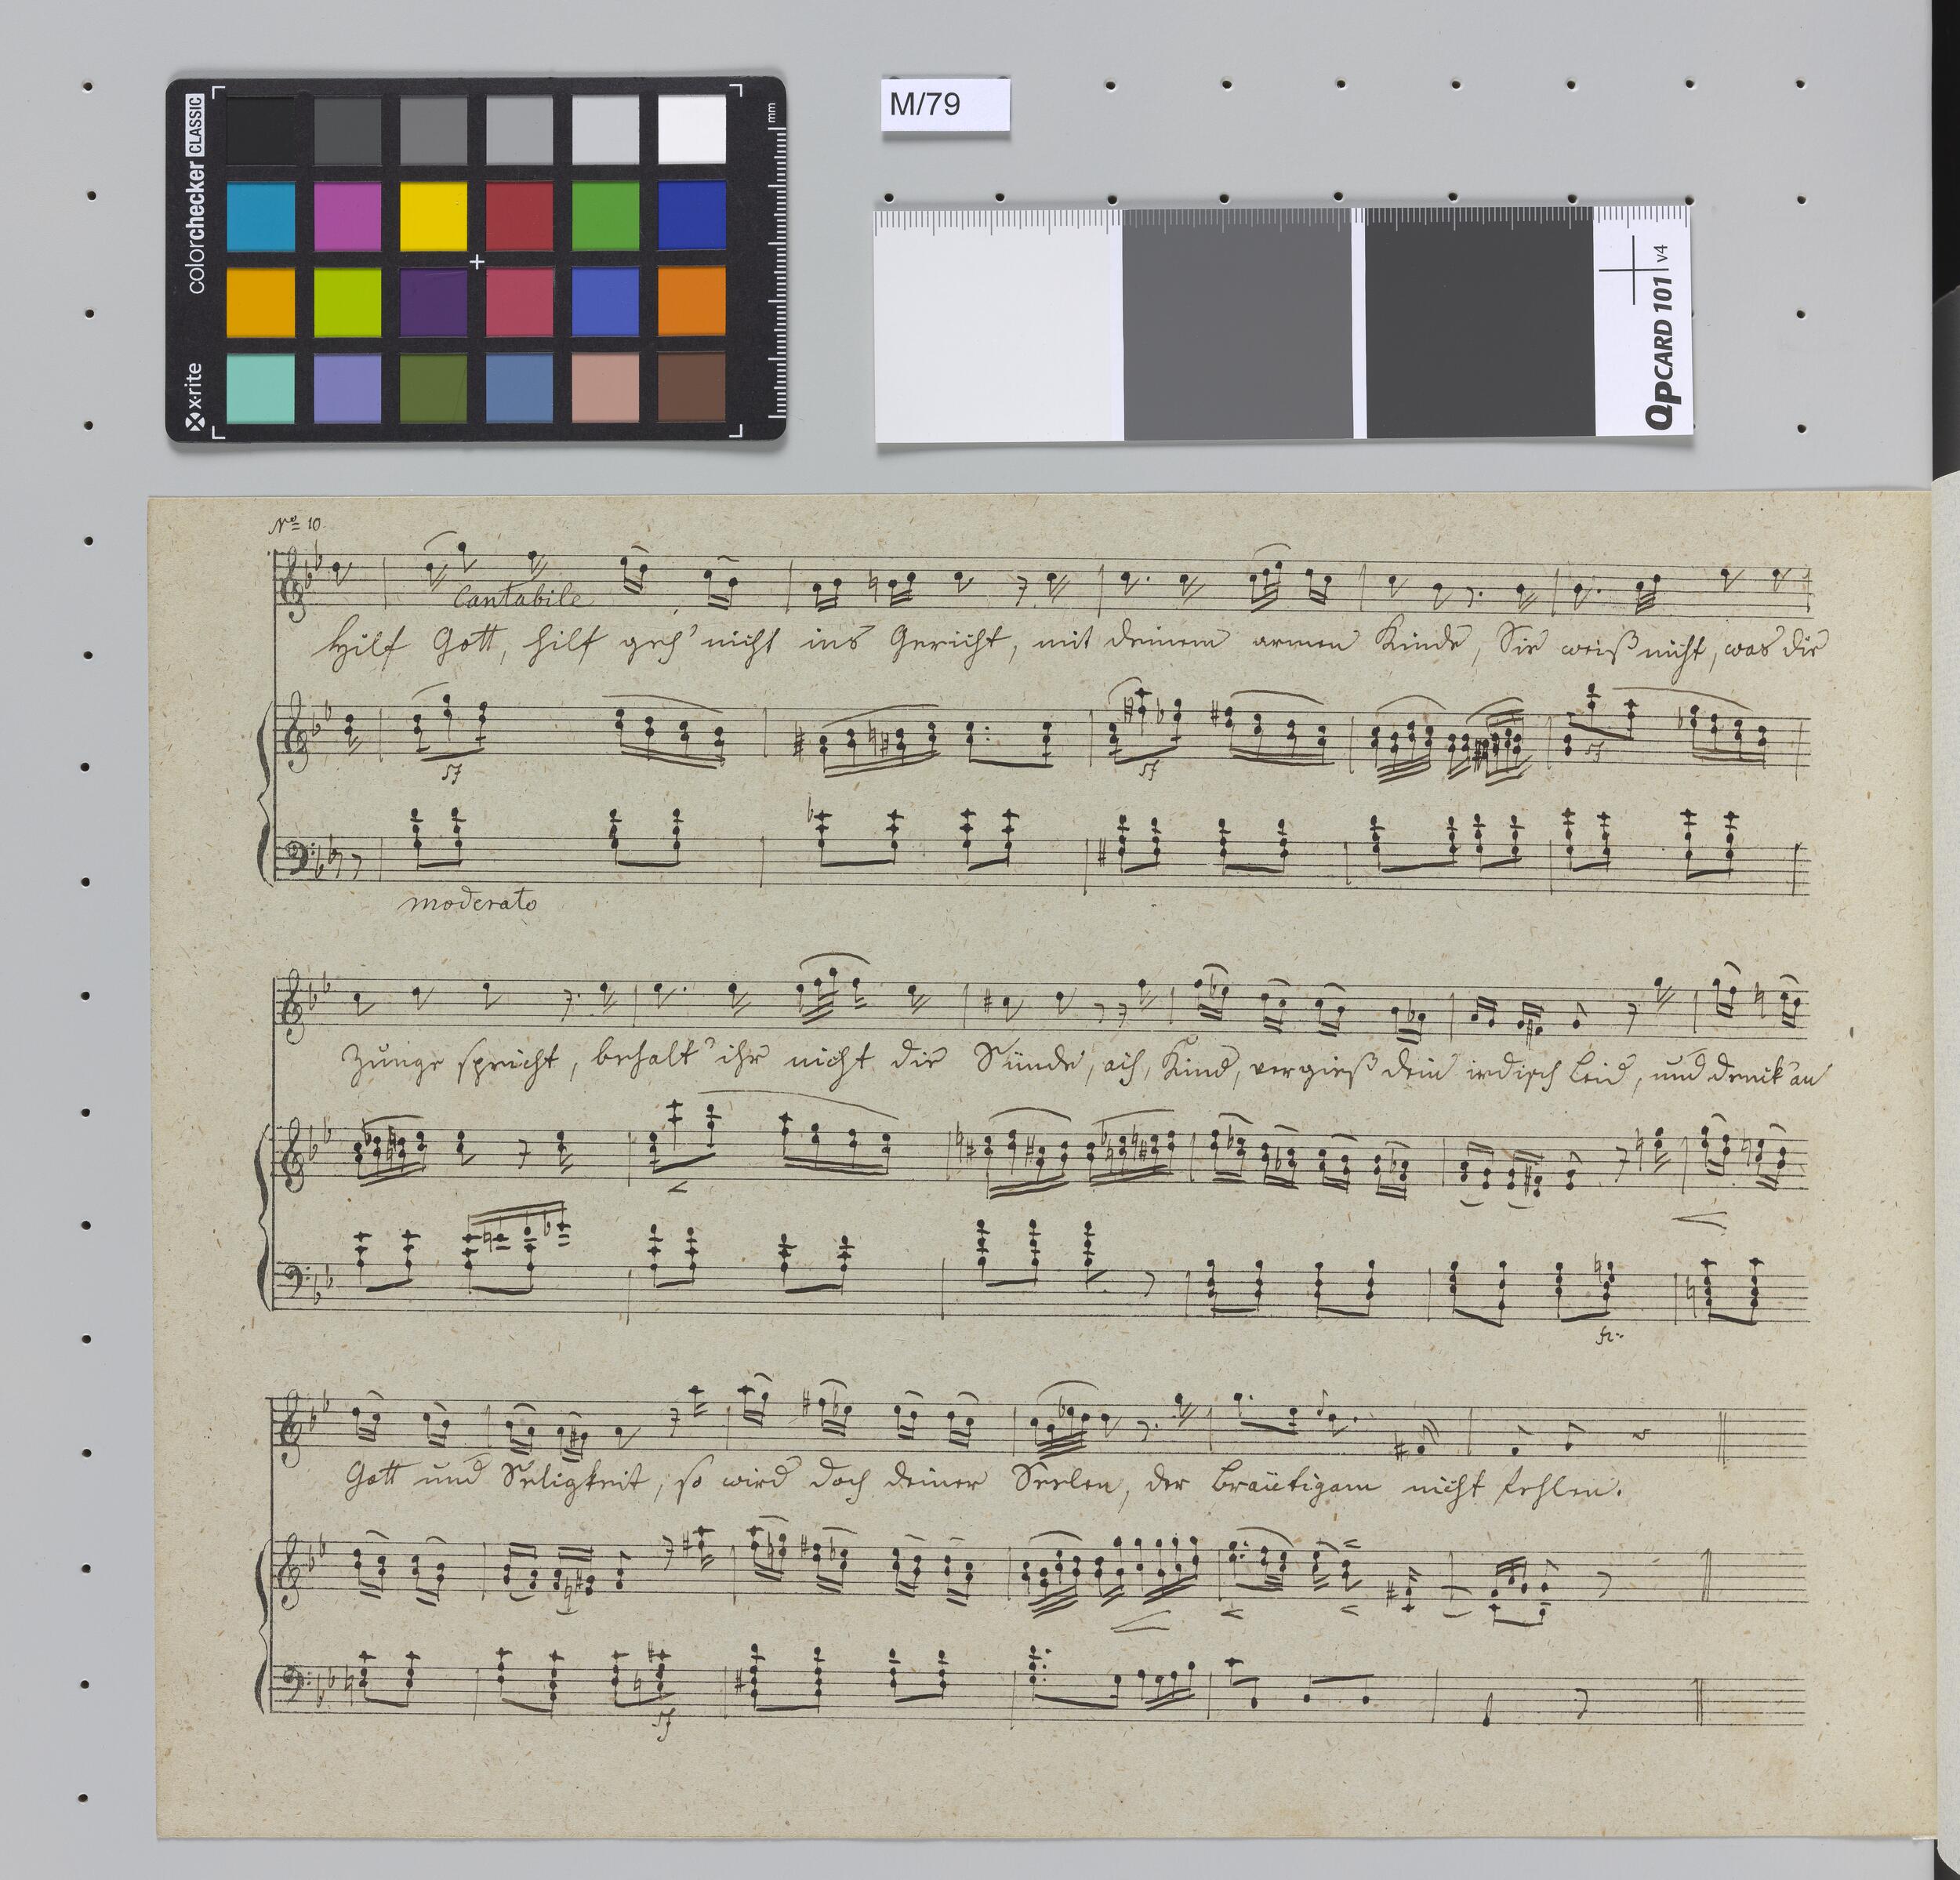 colorchecker CLASSIC
x-rite
mm
M/79
QPCARD 101 v4
No 10.
Cantabile
Hilf Gott, hilf geh' nicht ins Gericht, mit deinem armen Kinde, Sie weiß nicht, was die
sf sf sf
moderato
Zunge spricht, behalt' ihr nicht die Sünde, ach, Kind, vergieß dein irdisch Leid, und denk' an
Gott und Seligkeit, so wird doch deiner Seelen, der Bräutigam nicht fehlen.
sf